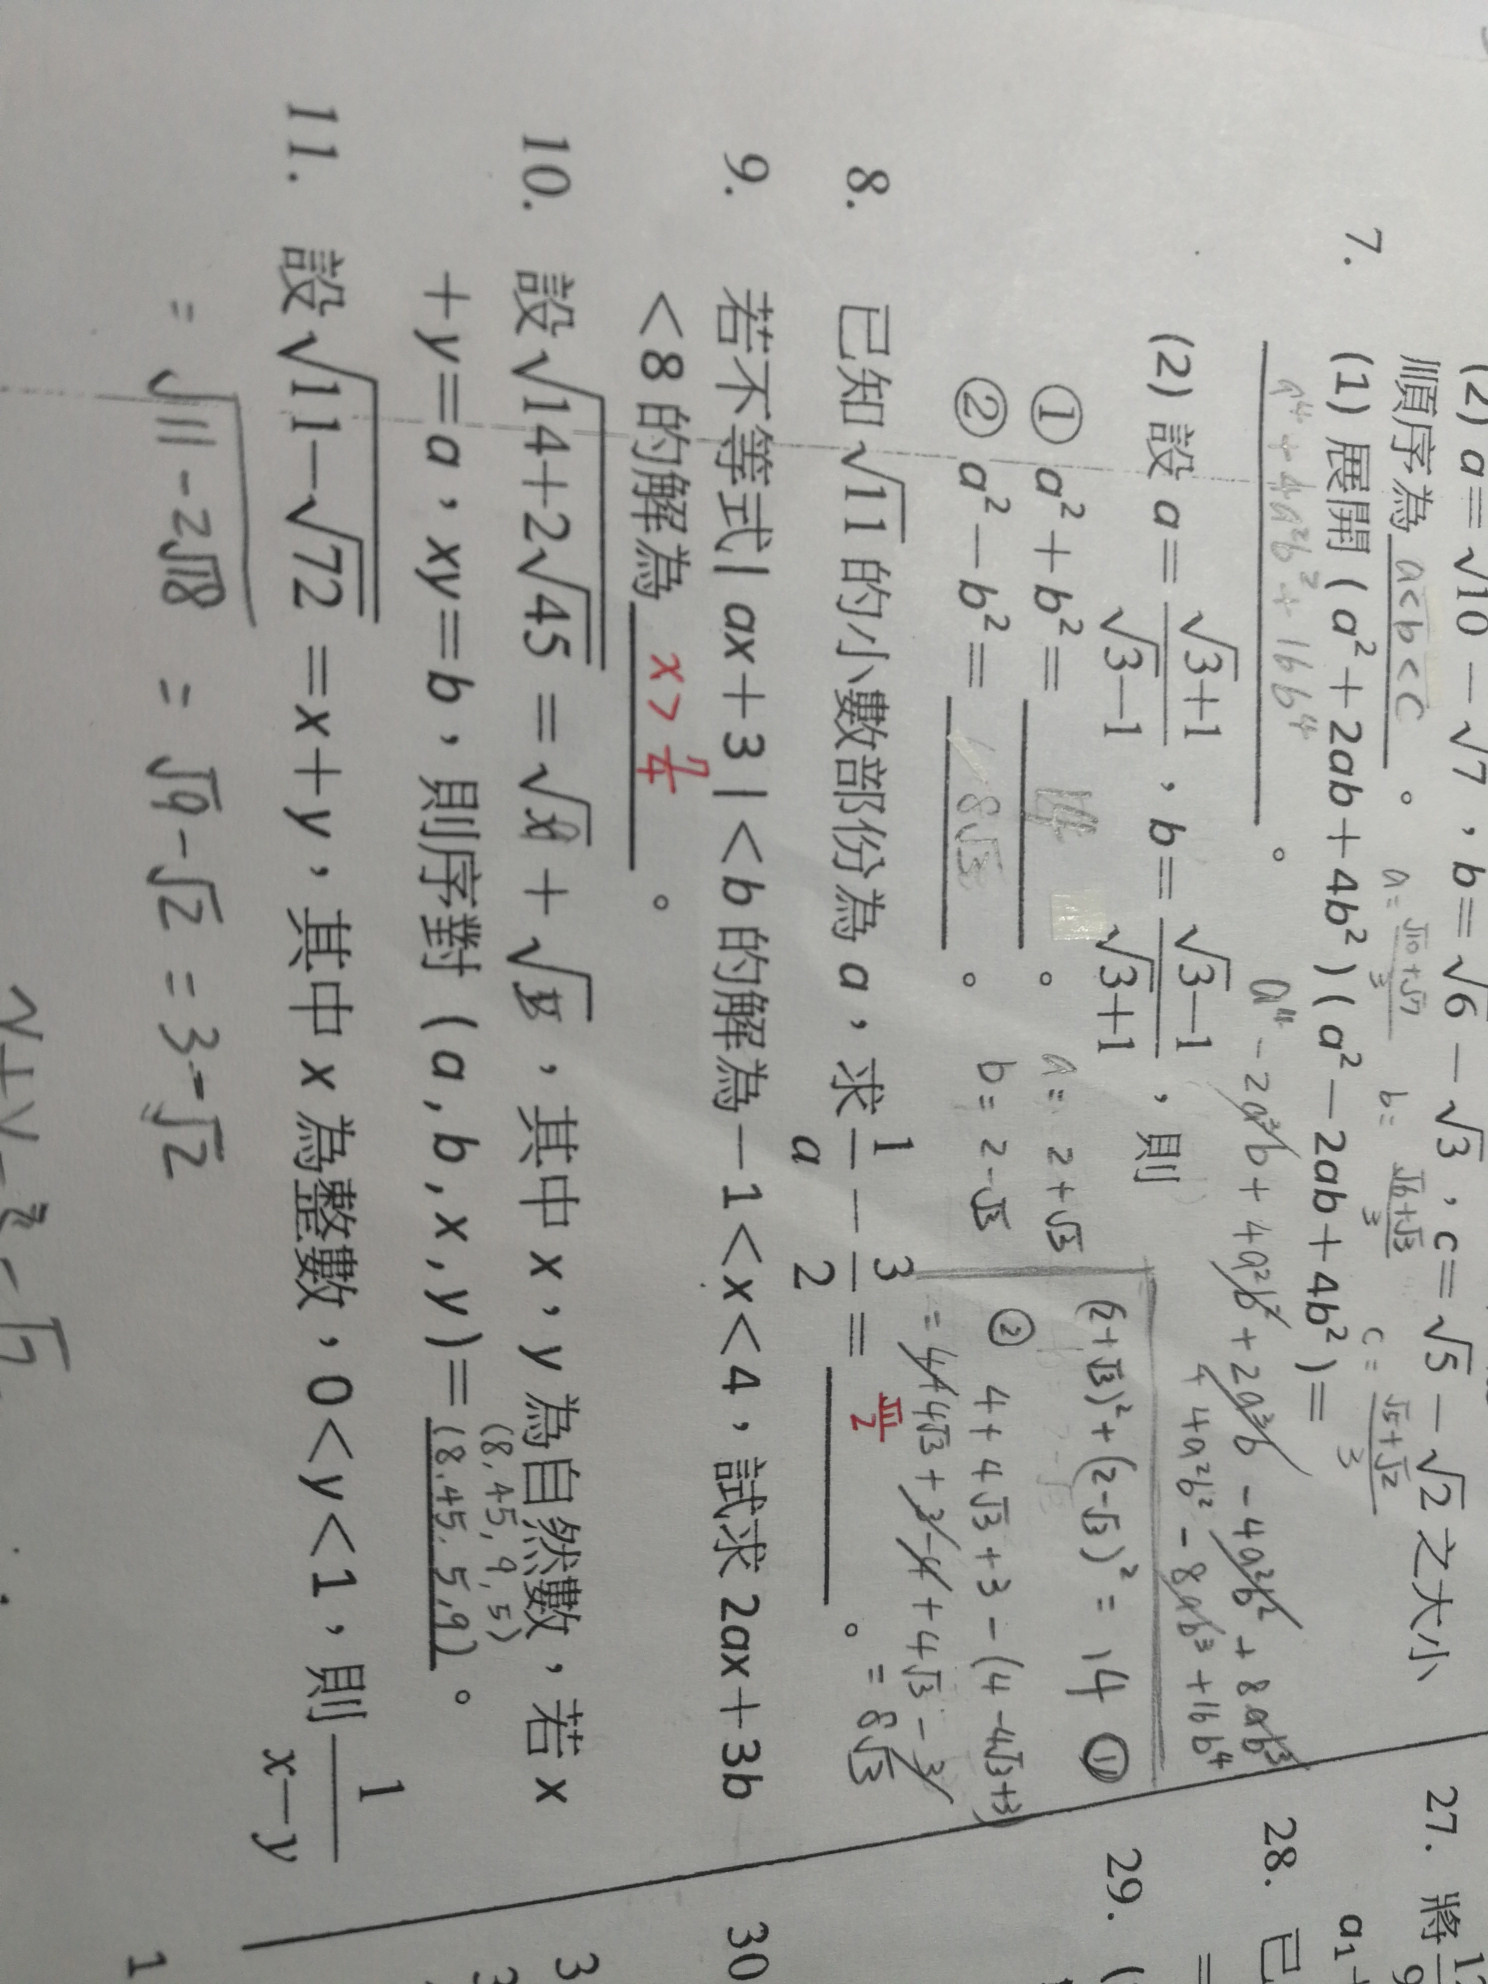 (2) a=√10－√7，b=√6－√3，c=√5－√2之大小
順序為 a<b<c 。
a=(√10+√7)/3 b=(√6+√3)/3 c=(√5+√2)/3
7. (1) 展開 (a²+2ab+4b²)(a²－2ab+4b²)=
a⁴+4a²b²+16b⁴ 。
a⁴-2a³b+4a²b²+2a³b-4a²b²+8ab³
+4a²b²-8ab³+16b⁴
(2) 設 a=(√3+1)/(√3－1)，b=(√3－1)/(√3+1)，則
① a²+b²= 14 。
a=2+√3
(2+√3)²+(2-√3)²=14 ①
② a²－b²= 8√3 。
b=2-√3
② 4+4√3+3-(4-4√3+3)
=4+4√3+3-4+4√3-3
=8√3
8. 已知√11的小數部份為 a，求 1/a－3/2= √11/2 。
9. 若不等式| ax+3 |<b 的解為－1<x<4，試求 2ax+3b
<8 的解為 x>7/4 。
10. 設√(14+2√45)=√x+√y，其中 x，y 為自然數，若 x
+y=a，xy=b，則序對 (a,b,x,y)= (8,45,5,9) 。
(8,45,9,5)
11. 設√(11－√72)=x+y，其中 x 為整數，0<y<1，則 1/(x－y)
=√(11-2√18) =√9-√2 =3-√2
27. 將
28. 已
a₁
=
29. (
30
3
1